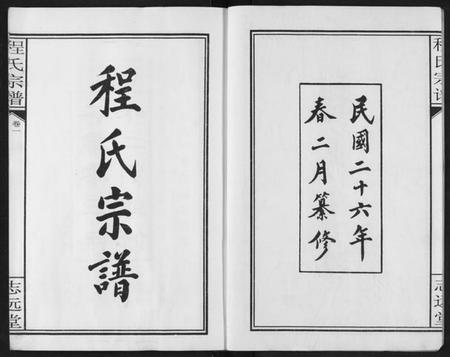 程氏宗譜
民國二十六年
春二月纂修
程氏宗谱
卷一
志远堂
程氏宗谱
志远堂